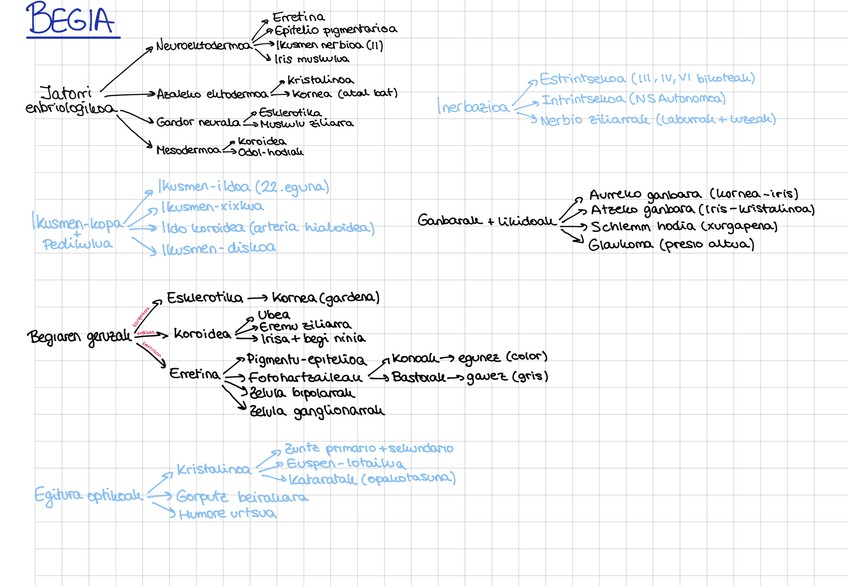 BEGIA
Jatorri enbriologikoa
Neuroektodermoa
Erretina
Epitelio pigmentarioa
Ikusmen nerbioa (II)
Iris muskulua
Azaleko ektodermoa
Kristalinoa
Kornea (atal bat)
Gandor neurala
Esklerotika
Muskulu ziliarra
Mesodermoa
Koroidea
Odol-hodiak
Inerbazioa
Estrintsekoa (III, IV, VI bikoteak)
Intrintsekoa (NS Autonomoa)
Nerbio ziliarrak (laburrak + luzeak)
Ikusmen-kopa
+
Pedikulua
Ikusmen-ildoa (22.eguna)
Ikusmen-xixkua
Ildo koroidea (arteria hialoidea)
Ikusmen-diskoa
Ganbarak + likidoak
Aurreko ganbara (kornea-iris)
Atzeko ganbara (Iris-kristalinoa)
Schlemm hodia (xurgapena)
Glaukoma (presio altua)
Begiaren geruzak
Esklerotika → Kornea (gardena)
Koroidea
Ubea
Eremu ziliarra
Irisa + begi ninia
Erretina
Pigmentu-epitelioa
Fotohartzaileak
Konoak → egunez (color)
Bastoiak → gauez (gris)
Zelula bipolarrak
Zelula ganglionarrak
Egitura optikoak
Kristalinoa
Zuntz primario + sekundario
Euspen-lotailua
Kataratak (opakotasuna)
Gorputz beirakara
Humore urtsua